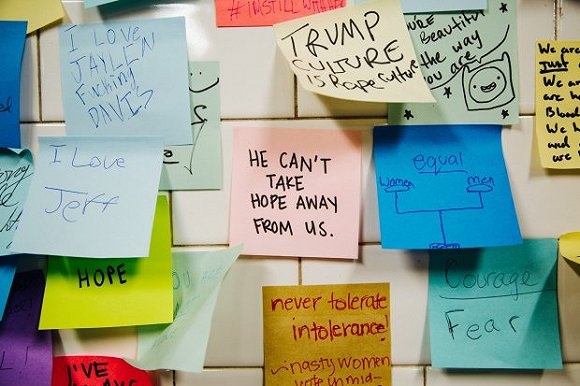 #INSTILLWITHHA
I LOVE
JAYLEN
Fucking
DAVIS
TRUMP
CULTURE
is Rape culture
You're Beautiful
the way
you are
We are
Just
We a
are w
Blood
We h
and
are
I Love
Jeff
HE CAN'T
TAKE
HOPE AWAY
FROM US.
equal
women men
HOPE
never tolerate
intolerance!
nasty women
vote in mid-
Courage
Fear
I'VE